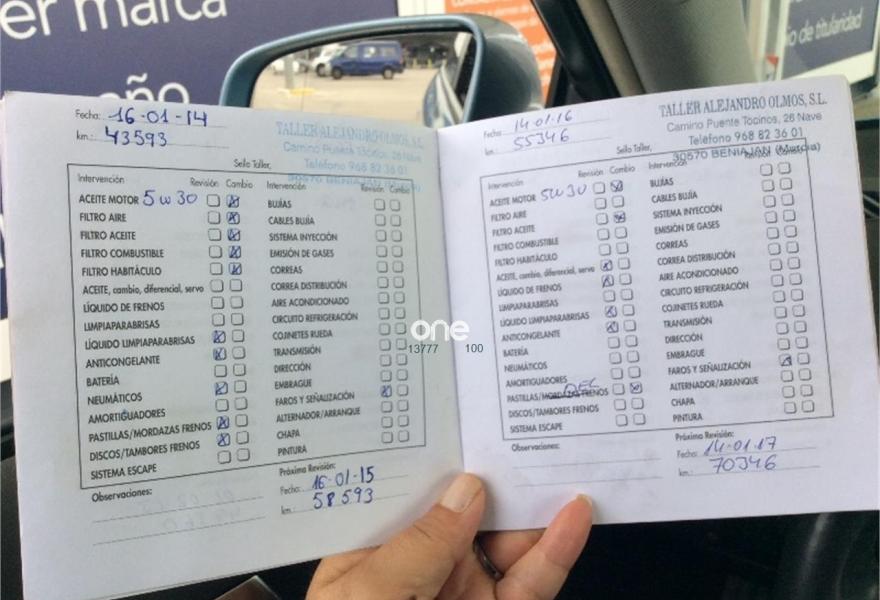 er marca
eño
io de titularidad
Fecha: 16-01-14
km.: 43593
TALLER ALEJANDRO OLMOS, S.L.
Camino Puente Tocinos, 26 Nave
Teléfono 968 82 36 01
30570 BENIAJAN
Sello Taller,
Intervención Revisión Cambio
ACEITE MOTOR 5W30
FILTRO AIRE
FILTRO ACEITE
FILTRO COMBUSTIBLE
FILTRO HABITÁCULO
ACEITE, cambio, diferencial, servo
LÍQUIDO DE FRENOS
LIMPIAPARABRISAS
LÍQUIDO LIMPIAPARABRISAS
ANTICONGELANTE
BATERÍA
NEUMÁTICOS
AMORTIGUADORES
PASTILLAS/MORDAZAS FRENOS
DISCOS/TAMBORES FRENOS
SISTEMA ESCAPE
Intervención Revisión Cambio
BUJÍAS
CABLES BUJÍA
SISTEMA INYECCIÓN
EMISIÓN DE GASES
CORREAS
CORREA DISTRIBUCIÓN
AIRE ACONDICIONADO
CIRCUITO REFRIGERACIÓN
COJINETES RUEDA
TRANSMISIÓN
DIRECCIÓN
EMBRAGUE
FAROS Y SEÑALIZACIÓN
ALTERNADOR/ARRANQUE
CHAPA
PINTURA
Observaciones:
Próxima Revisión:
Fecha: 16-01-15
km.: 58593
one
13777 100
Fecha: 14-01-16
km.: 55346
TALLER ALEJANDRO OLMOS, S.L.
Camino Puente Tocinos, 26 Nave
Teléfono 968 82 36 01
30570 BENIAJAN (Murcia)
Sello Taller,
Intervención Revisión Cambio
ACEITE MOTOR 5W30
FILTRO AIRE
FILTRO ACEITE
FILTRO COMBUSTIBLE
FILTRO HABITÁCULO
ACEITE, cambio, diferencial, servo
LÍQUIDO DE FRENOS
LIMPIAPARABRISAS
LÍQUIDO LIMPIAPARABRISAS
ANTICONGELANTE
BATERÍA
NEUMÁTICOS
AMORTIGUADORES
PASTILLAS/MORDAZAS FRENOS DEL
DISCOS/TAMBORES FRENOS
SISTEMA ESCAPE
Intervención Revisión Cambio
BUJÍAS
CABLES BUJÍA
SISTEMA INYECCIÓN
EMISIÓN DE GASES
CORREAS
CORREA DISTRIBUCIÓN
AIRE ACONDICIONADO
CIRCUITO REFRIGERACIÓN
COJINETES RUEDA
TRANSMISIÓN
DIRECCIÓN
EMBRAGUE
FAROS Y SEÑALIZACIÓN
ALTERNADOR/ARRANQUE
CHAPA
PINTURA
Observaciones:
Próxima Revisión:
Fecha: 14-01-17
km.: 70346